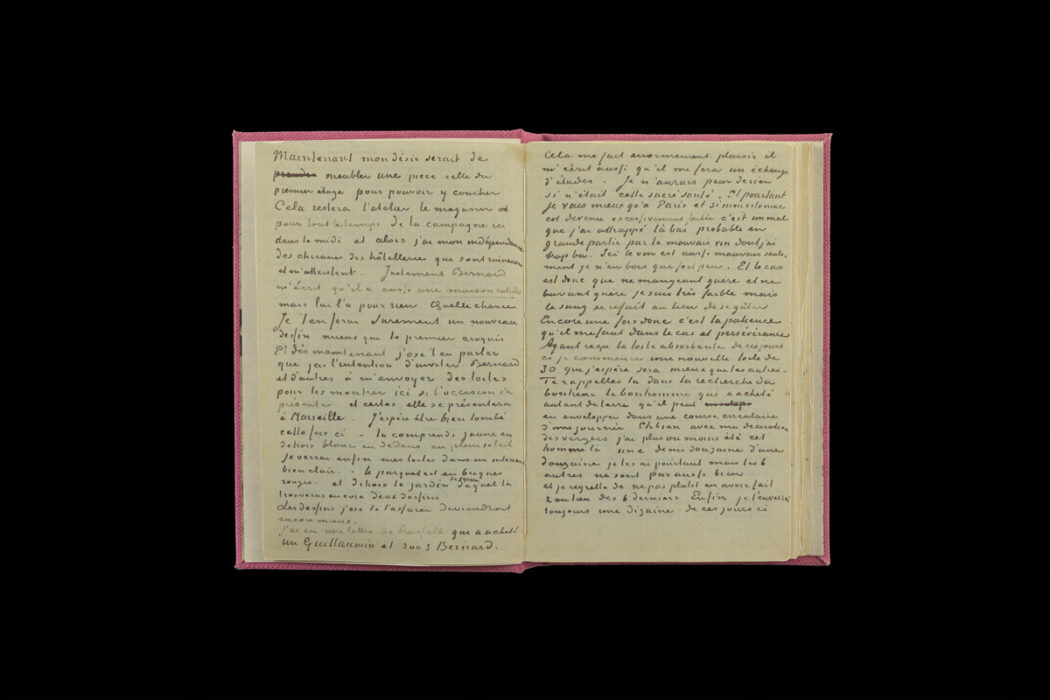 Maintenant mon désir serait de
prendre meubler une pièce celle du
premier étage pour pouvoir y coucher
Cela restera l'atelier le magasin et
pour tout le temps de la campagne ici
dans le midi et alors j'ai mon indépendance
des chicanes des hôtelleries que sont ruineuses
et m'attristent. Justement Bernard
m'écrit qu'il a aussi une maison entière
mais lui l'a pour rien Quelle chance
Je t'en ferai surement un nouveau
dessin mieux que le premier croquis
Et dès maintenant j'ose t'en parler
que j'ai l'intention d'inviter Bernard
et d'autres à m'envoyer des toiles
pour les montrer ici si l'occasion s'e
présente et certes elle se présentera
à Marseille. J'espère être bien tombé
cette fois ci – tu comprends jaune en
dehors blanc en dedans en plein soleil
je verrai enfin mes toiles dans un interieur
bien clair. – le parquet est en briques
rouges. et dehors le jardin duquel tu
trouveras encore deux dessins
Les dessins j'ose te l'assurer deviendront
encore mieux.
j'ai eu une lettre de qui a acheté
un Guillaumin et 2 ou 3 Bernard.
Cela me fait enormement plaisir il
m'écrit aussi qu'il me fera un échange
d'études. Je n'aurais peur de rien
si n'était cette sacré santé. Et pourtant
je vais mieux qu'à Paris et si mon estomac
est devenu excessivement faible c'est un mal
que j'ai attrappé là bas probable en
grande partie par le mauvais vin dont j'ai
trop bu. Ici le vin est aussi mauvais seule-
ment je n'en bois que fort peu. Et le cas
est donc que ne mangeant guère et ne
buvant guère je suis très faible mais
le sang se refait au lieu de se gâter
Encore une fois donc c'est la patience
qu'il me faut dans le cas et persévérance
Ayant reçu la toile absorbante de ces jours
ci je commence une nouvelle toile de
30 que j'espère sera mieux que les autres –
Te rappelles tu dans la recherche du
bonheur le bonhomme qui a acheté
autant de terre qu'il peut
en envelopper dans une course circulaire
d'une journée Eh bien avec ma décoration
des vergers j'ai plus ou moins été cet
homme là une demi douzaine d'une
douzaine je les ai pourtant mais les 6
autres ne sont pas aussi bien
et je regrette de ne pas plutôt en avoir fait
2 au lieu des 6 derniers Enfin je t'enverrai
toujours une dizaine de ces jours ci